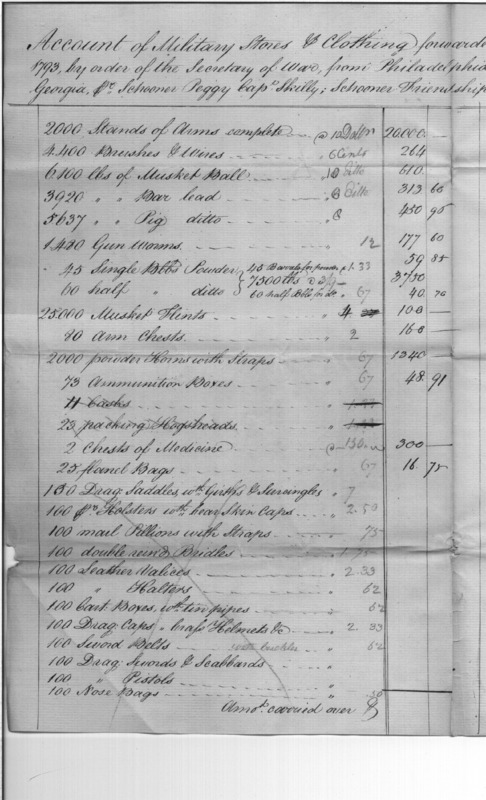 Account of Military Stores & Clothing forwarde
1793, by order of the Secretary of War, from Philadelphia
Georgia, pr Schooner Peggy Capn Skilly; Schooner Friendship
2000 Stands of Arms complete @ 10 Dollrs 20,000.—
4.400 Brushes & Wires " 6 Cents 264
6100 lbs of Musket Ball " 10 Ditto 610.
3920 " " Bar lead " 8 Ditto 313 60
5637 " " Pig ditto " 8 450 96
1,480 Gun Worms " 12 177 60
45 Single Bbls Powder 45 Barrels for powder @ 1.33 59 85
7500 lbs 3750
60 half " ditto 60 half Bbls for do " 67 40. 20
25.000 Musket Flints " 4 100 —
80 Arm Chests " 2 160 —
2000 powder Horns with Straps " 67 1340 —
73 Ammunition Boxes " 67 48. 91
11 Casks " 1.33
25 packing Hogsheads " 1.33
2 Chests of Medicine @ 150 300 —
25 flanel Bags " 67 16. 75
100 Drag. Saddles, wth Girths & Surcingles " 7
100 pr Holsters wth bear Skin Caps " 2.50
100 mail Pillions with Straps " 75
100 double reind Bridles " 1.75
100 Leather Valices " 2.33
100 " Halters " 62
100 Cart. Boxes, wth tin pipes " 62
100 Drag. Caps, brass Helmets &c " 2. 33
100 Sword Belts with buckles " 62
100 Drag. Swords & Scabbards "
100 " Pistols "
100 Nose Bags "
Amot. carried over $